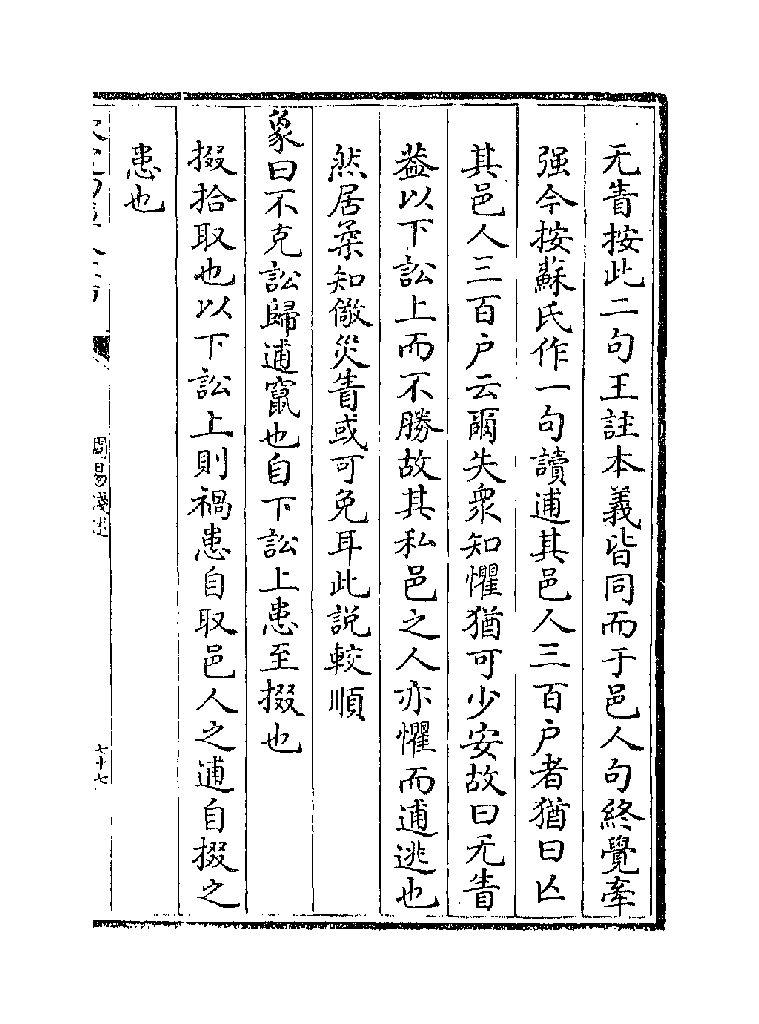 无眚按此二句王註本義皆同而于邑人句終覺牽
强今按蘇氏作一句讀逋其邑人三百户者猶曰亾
其邑人三百户云爾失衆知懼猶可少安故曰无眚
葢以下訟上而不勝故其私邑之人亦懼而逋逃也
然居柔知儆災眚或可免耳此説較順
象曰不克訟歸逋竄也自下訟上患至掇也
掇拾取也以下訟上則禍患自取邑人之逋自掇之
患也
周易淺述
七十七